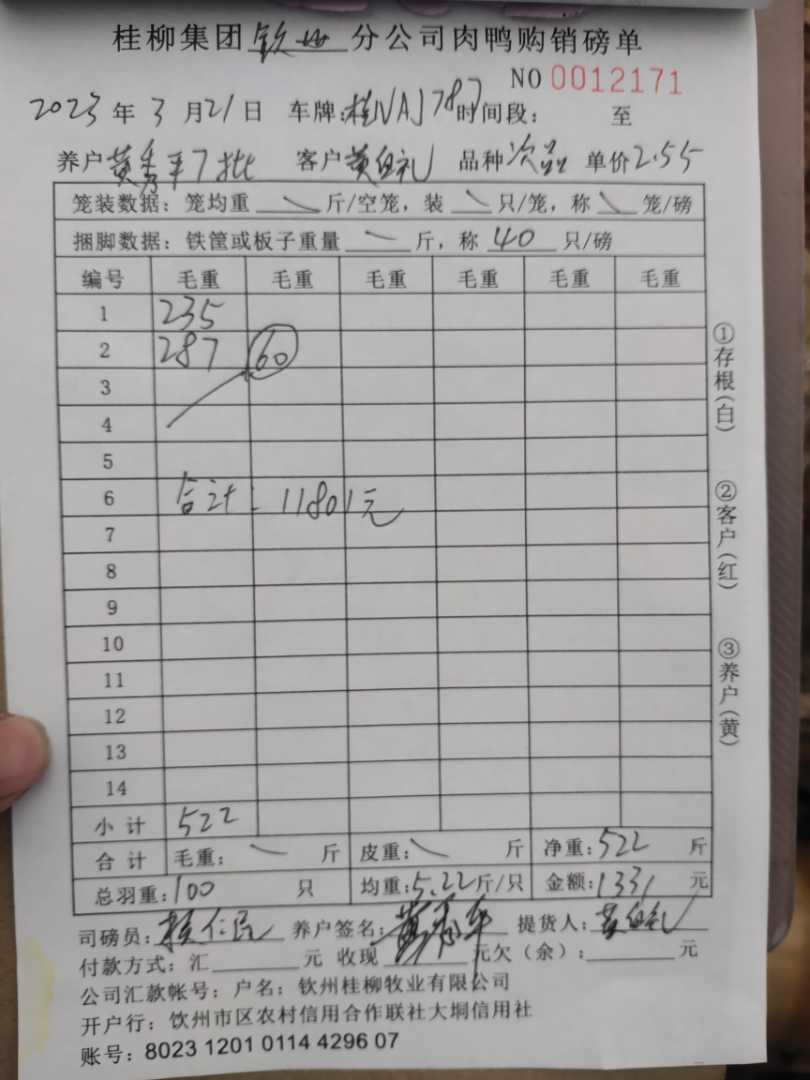 桂柳集团钦州分公司肉鸭购销磅单
NO 0012171
2023年3月21日 车牌:桂NAJ787时间段: 至
养户黄秀平7批 客户黄礼 品种次品 单价2.55
笼装数据: 笼均重 斤/空笼, 装 只/笼, 称 笼/磅
捆脚数据: 铁筐或板子重量 斤, 称 40 只/磅
编号 毛重 毛重 毛重 毛重 毛重 毛重
1 235
2 287 60
3
4
5
6 合计: 11801元
7
8
9
10
11
12
13
14
小计 522
合计 毛重: 斤 皮重: 斤 净重:522 斤
总羽重:100 只 均重:5.22斤/只 金额:1331元
司磅员: 仁民 养户签名:黄秀平 提货人:黄礼
付款方式: 汇 元 收现 元欠(余): 元
公司汇款帐号: 户名: 钦州桂柳牧业有限公司
开户行: 饮州市区农村信用合作联社大垌信用社
账号: 8023 1201 0114 4296 07
①存根(白)
②客户(红)
③养户(黄)